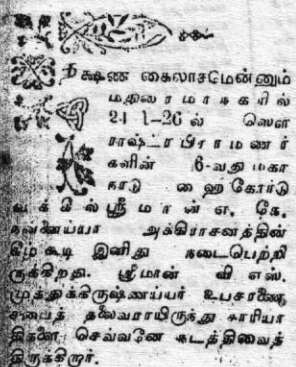 தக்ஷண கைலாசமென்னும்
மதுரைமாநகரில்
24-1-26ல் ஸௌ
ராஷ்ட்ரபிராமணர்
களின் 6-வது மகா
நாடு ஹைகோர்டு
வக்கீல் ஸ்ரீமான் எ. கே.
அக்கிராசனத்தின்
கீழ் கூடி இனிது நடைபெற்றி
ருக்கிறது. ஸ்ரீமான் வி எஸ்.
முத்துக்கிருஷ்ணய்யர் உபசரணை
சபைத் தலைவராயிருந்து காரியா
திகளை செவ்வனே நடத்திவைத்
திருக்கிறார்.